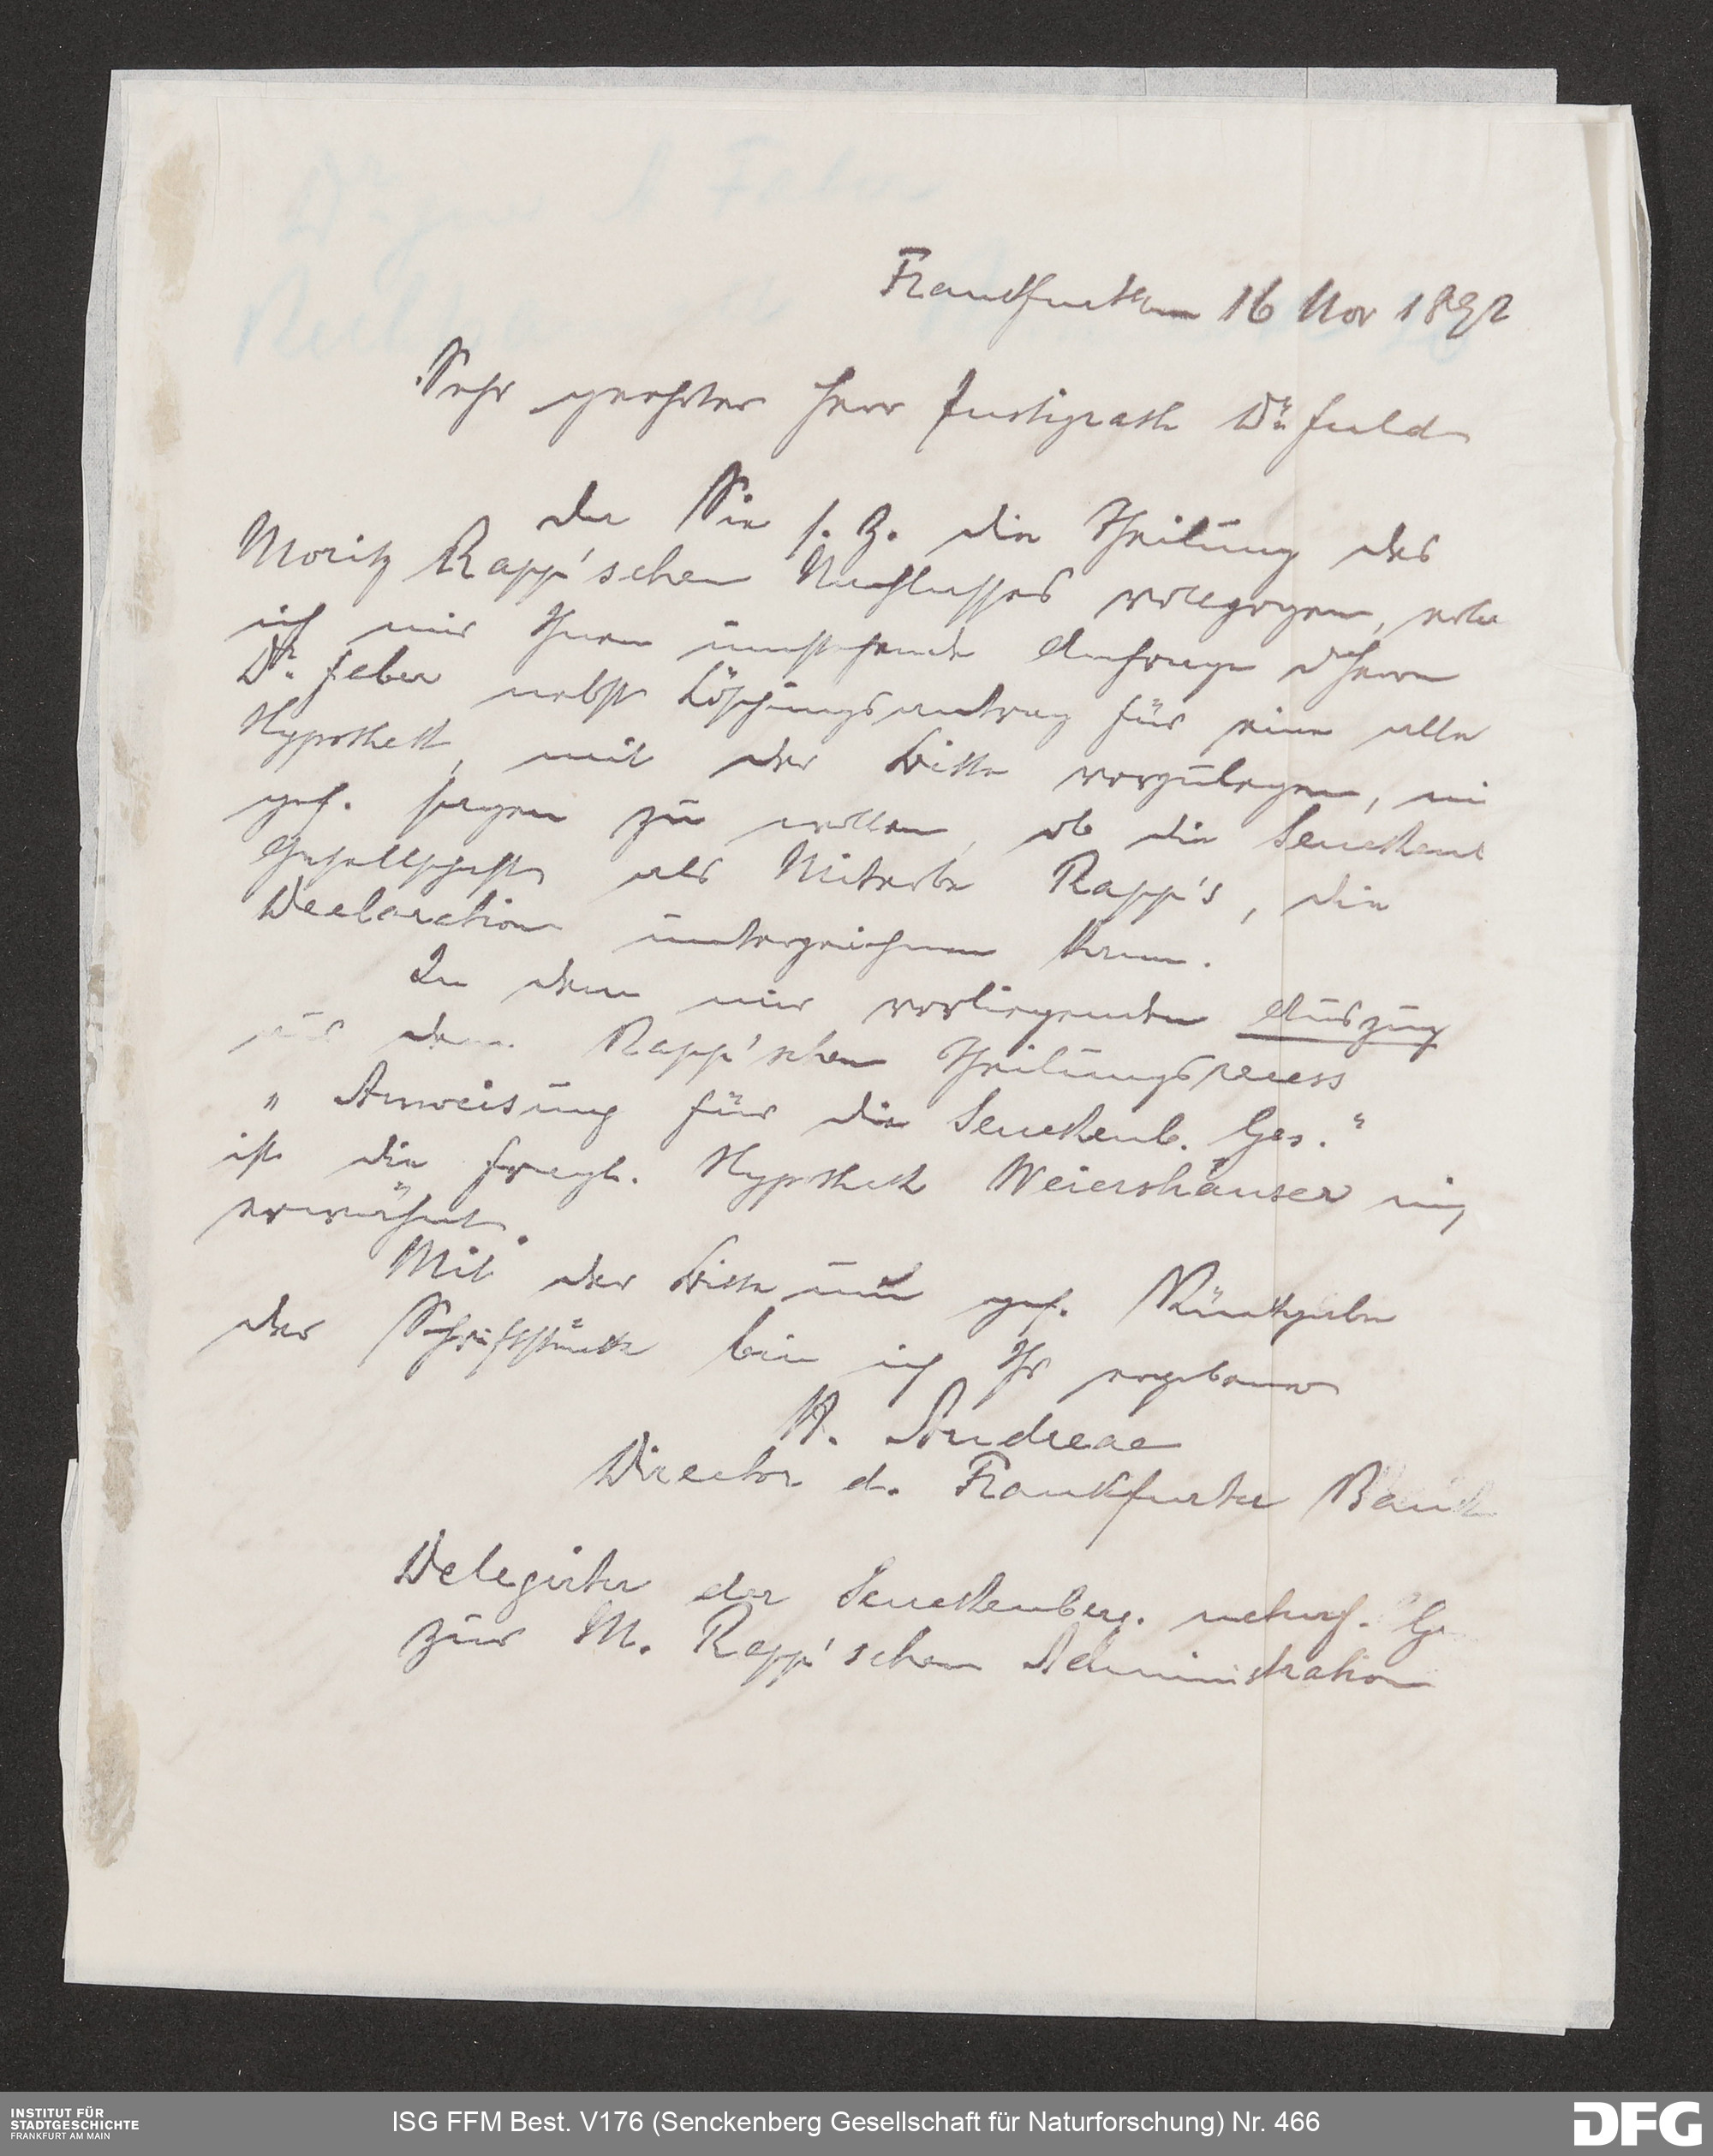 Frankfurt am 16 Nov 1892
Sehr geehrter Herr Justizrath Dr. Fuld
Da Sie s. Z. die Theilung des
Moritz Rapp'schen Nachlasses vollzogen, erlau
ich mir Ihnen umstehende Anfrage d Herrn
Dr. Feber nebst Löschungsantrag für eine alte
Hypothek, mit der Bitte vorzulegen, mi
gef. sagen zu wollen, ob die Senckenb
Gesellschaft als Miterbe Rapp's, die
Declaration unterzeichnen kann.
In dem mir vorliegenden Auszug
aus dem Rapp'schen Theilungsrecess
„Anweisung für die Senckenb. Ges."
ist die fragl. Hypothek Weiershäuser nich
erwähnt.
Mit der Bitte um gef. Rückgabe
der Schriftstücke bin ich Ihr ergebener
A. Andreae
Director d. Frankfurter Bank
Delegirter der Senckenberg. naturf. Ge
zur M. Rapp'schen Administration
INSTITUT FÜR
STADTGESCHICHTE
FRANKFURT AM MAIN
ISG FFM Best. V176 (Senckenberg Gesellschaft für Naturforschung) Nr. 466
DFG